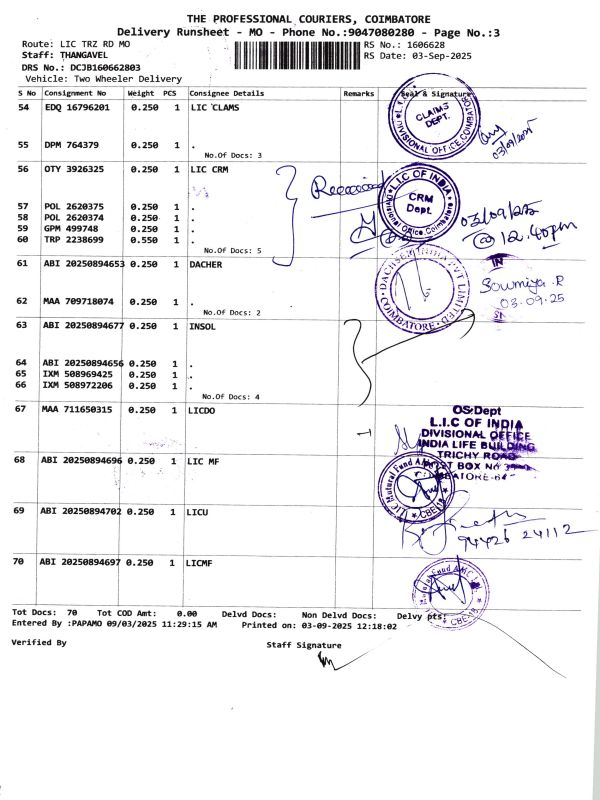 THE PROFESSIONAL COURIERS, COIMBATORE
Delivery Runsheet - MO - Phone No.:9047080280 - Page No.:3
Route: LIC TRZ RD MO
RS No.: 1606628
Staff: THANGAVEL
RS Date: 03-Sep-2025
DRS No.: DCJB160662803
Vehicle: Two Wheeler Delivery
S No Consignment No Weight PCS Consignee Details Remarks Seal & Signature
54 EDQ 16796201 0.250 1 LIC CLAMS
CLAIMS DEPT.
DIVISIONAL OFFICE, COIMBATORE
03/09/2025
55 DPM 764379 0.250 1 .
No.Of Docs: 3
56 OTY 3926325 0.250 1 LIC CRM
Received
L.I.C OF INDIA
CRM Dept.
Divisional Office, Coimbatore
57 POL 2620375 0.250 1 .
58 POL 2620374 0.250 1 .
59 GPM 499748 0.250 1 .
60 TRP 2238699 0.550 1 .
03/09/25
@ 12.40pm
No.Of Docs: 5
61 ABI 20250894653 0.250 1 DACHER
DACHSER INDIA PVT LIMITED
COIMBATORE
IN
Soumiya R
03.09.25
62 MAA 709718074 0.250 1 .
No.Of Docs: 2
63 ABI 20250894677 0.250 1 INSOL
64 ABI 20250894656 0.250 1 .
65 IXM 508969425 0.250 1 .
66 IXM 508972206 0.250 1 .
No.Of Docs: 4
67 MAA 711650315 0.250 1 LICDO
OS Dept
L.I.C OF INDIA
DIVISIONAL OFFICE
INDIA LIFE BUILDING
TRICHY ROAD
68 ABI 20250894696 0.250 1 LIC MF
LIC Mutural Fund AMC
CBE-18
69 ABI 20250894702 0.250 1 LICU
94426 24112
70 ABI 20250894697 0.250 1 LICMF
Mutural Fund AMC
CBE-18
Tot Docs: 70 Tot COD Amt: 0.00 Delvd Docs: Non Delvd Docs: Delvy pts:
Entered By :PAPAMO 09/03/2025 11:29:15 AM Printed on: 03-09-2025 12:18:02
Verified By
Staff Signature